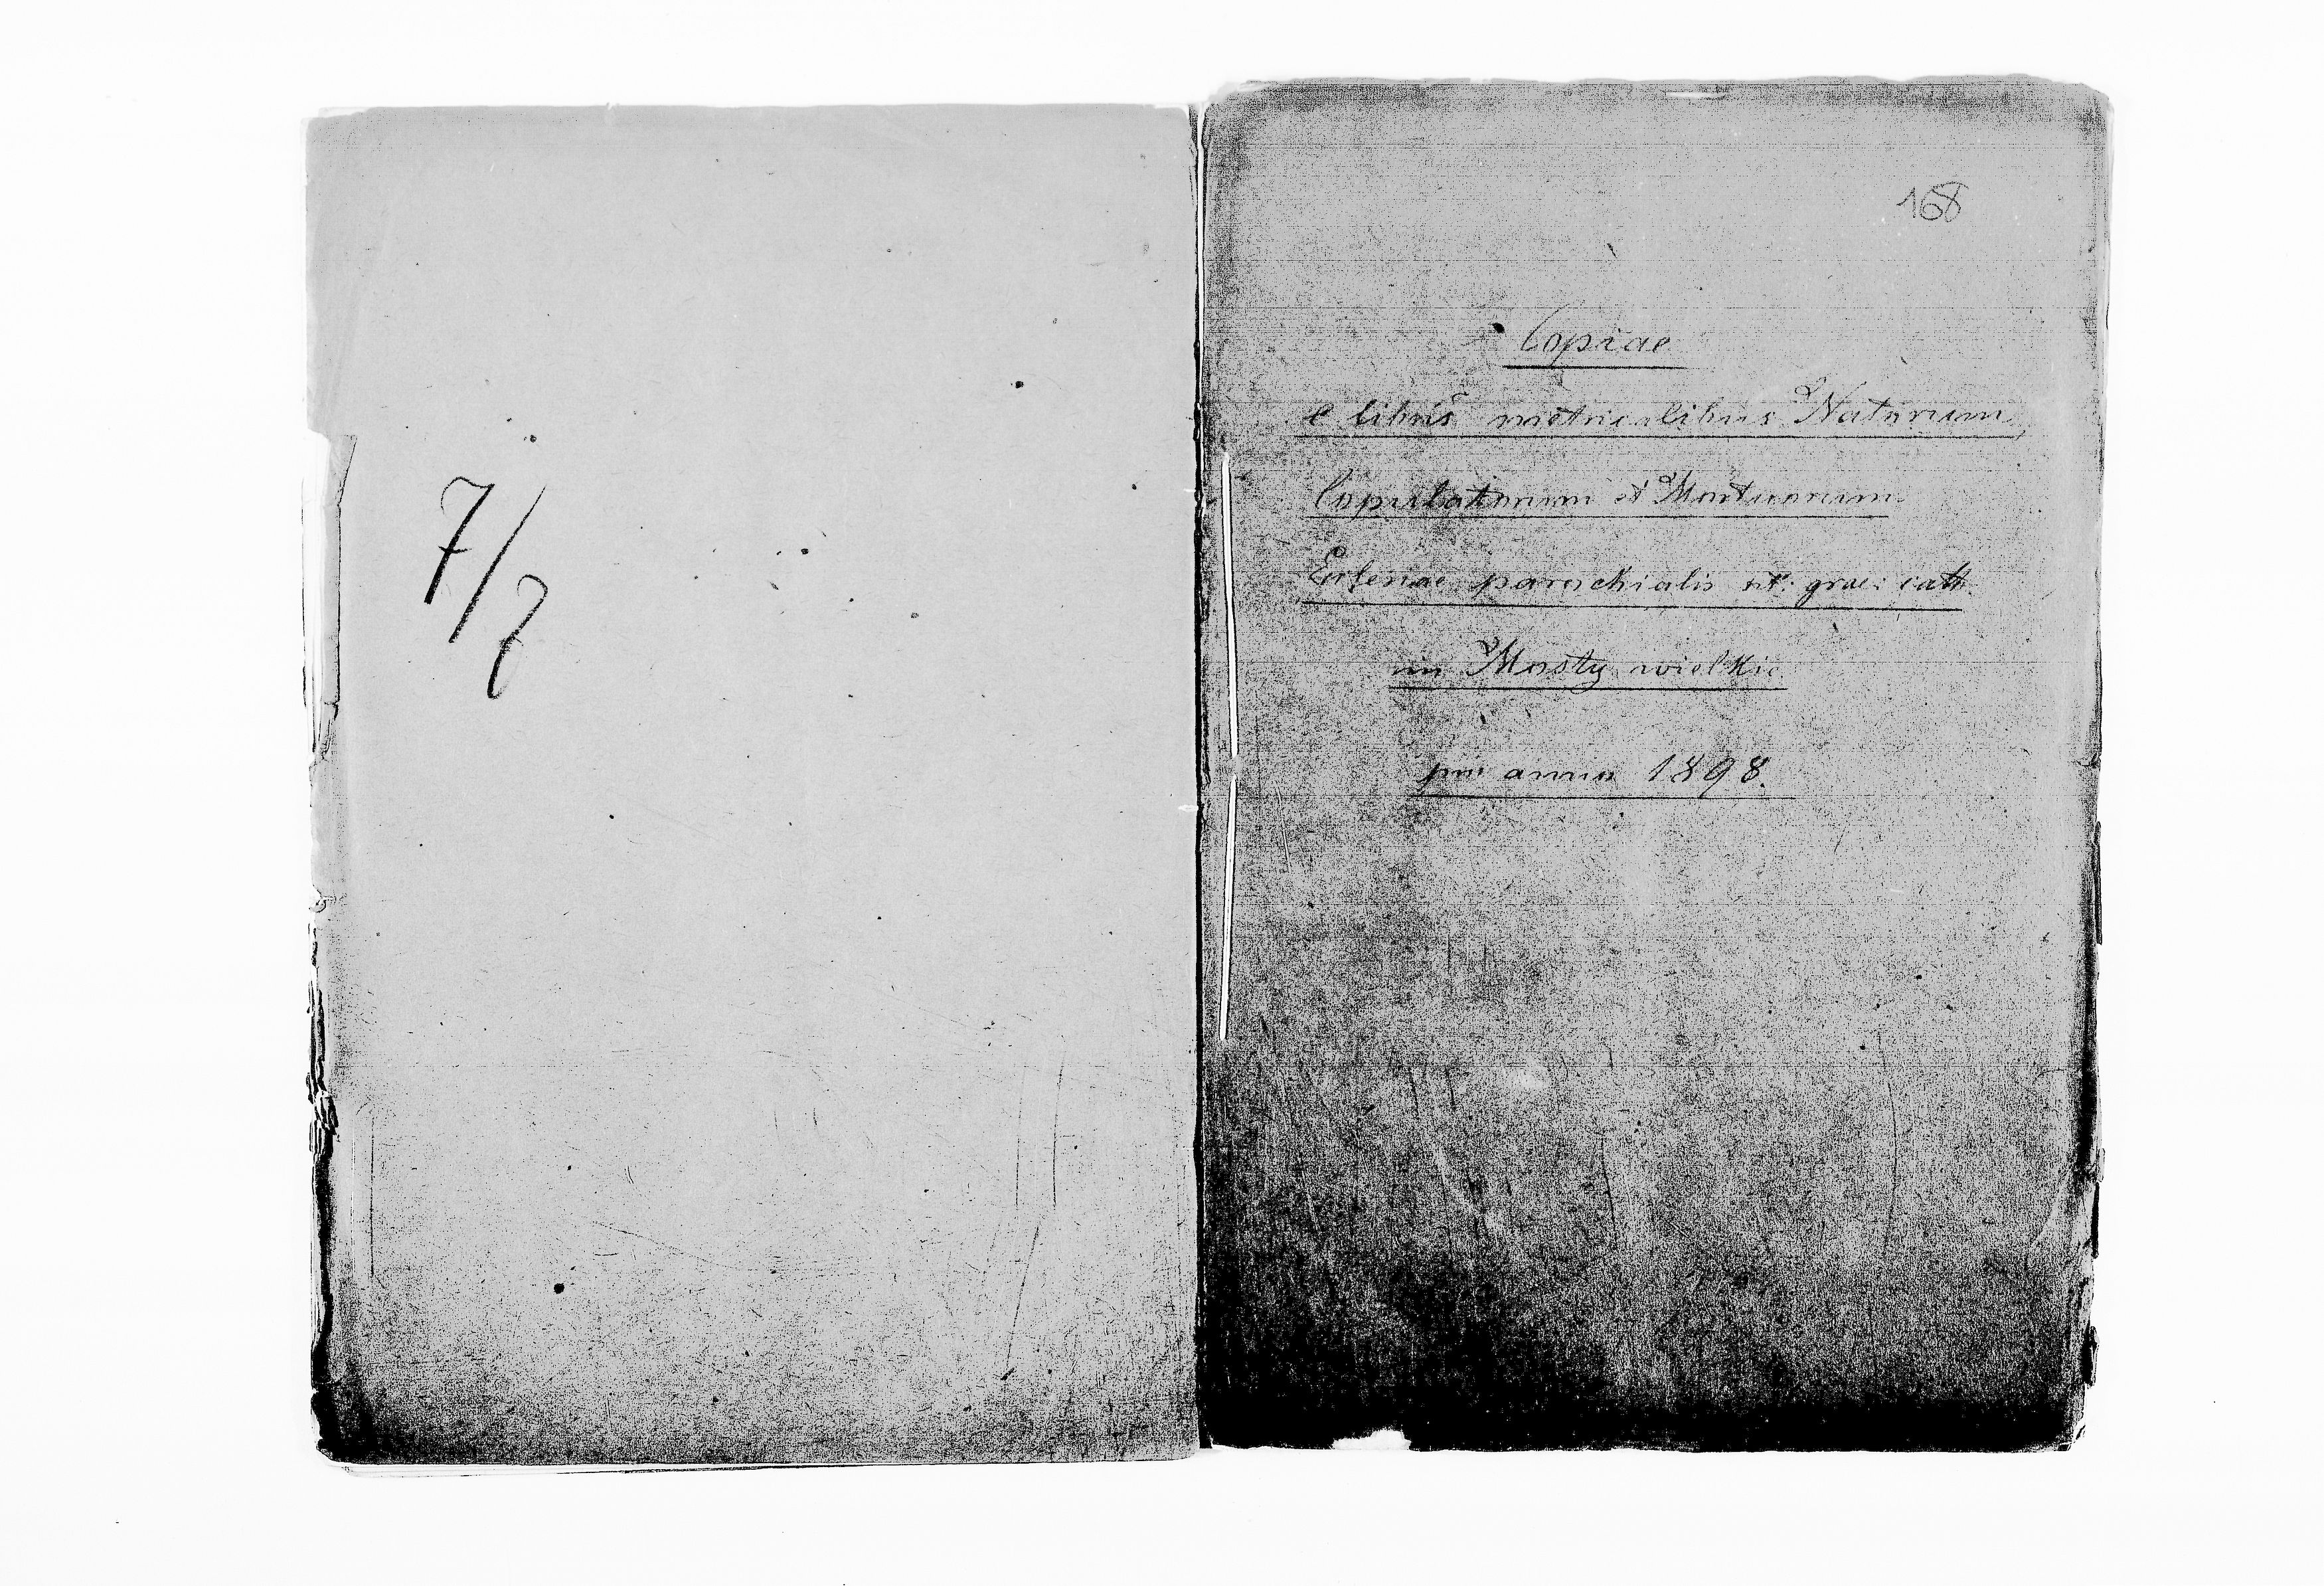 7/7
168
Copiae
e libris metricalibus Natorum,
Copulatorum et Mortuorum
Eclesiae parochialis rit: grae: cath.
in Mosty wielkie
pro anno 1898.